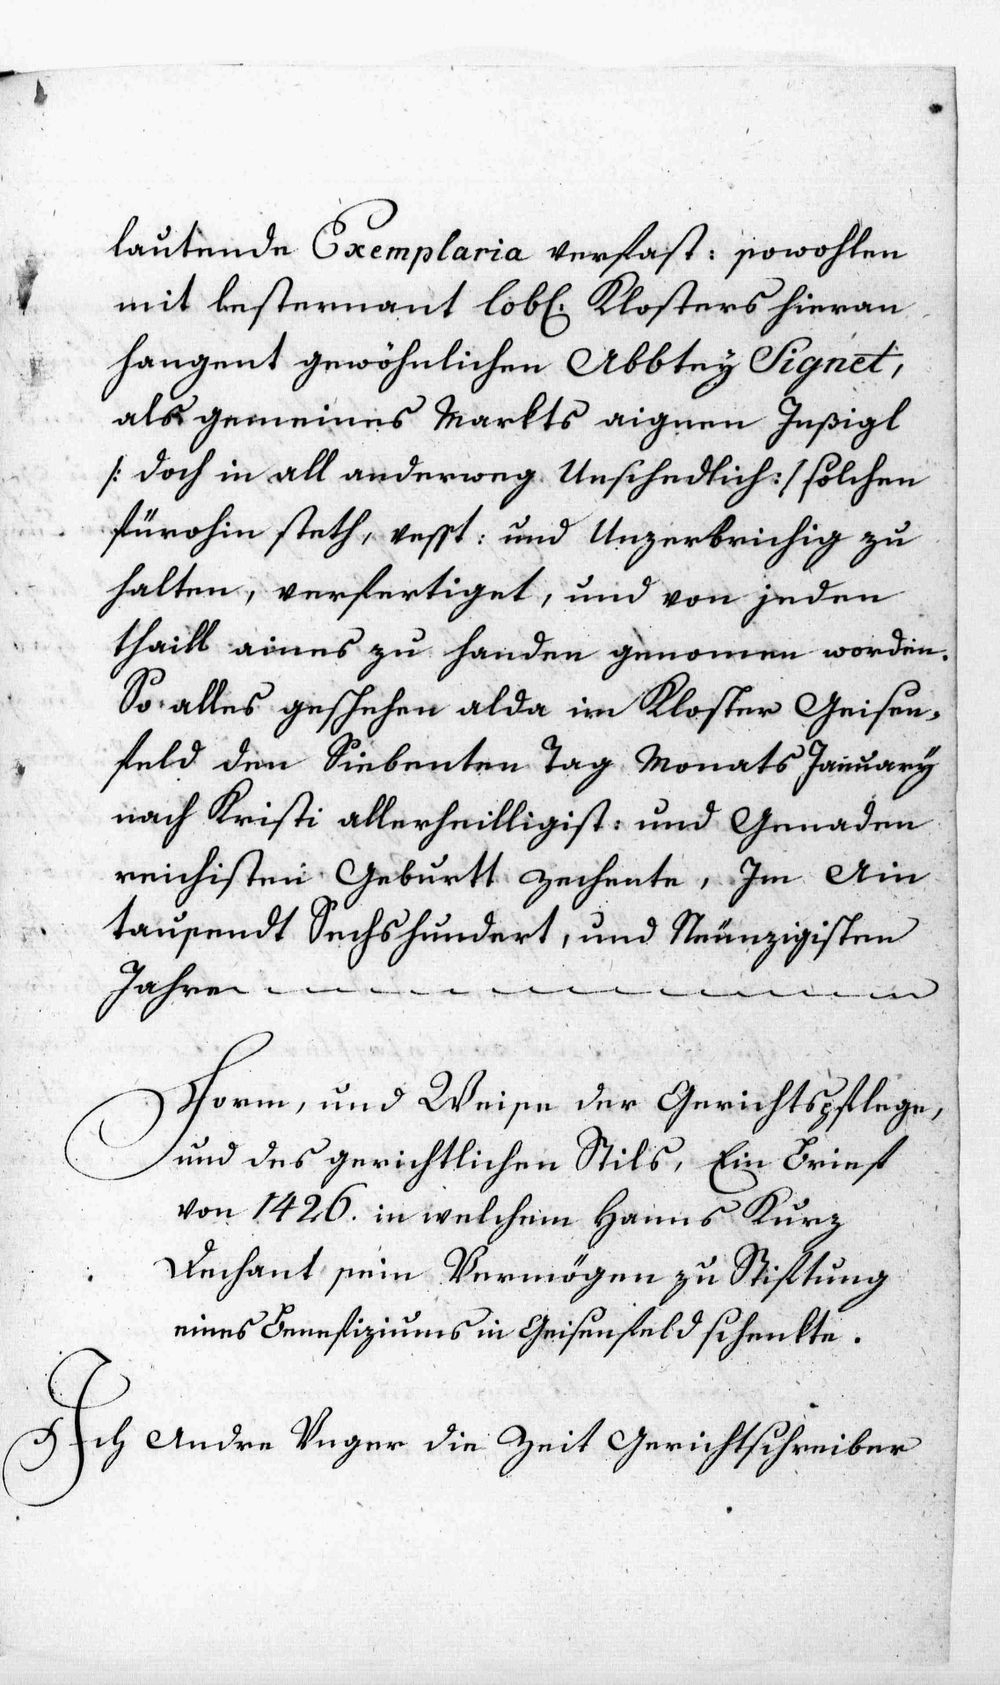 lautende Exemplaria verfast: sowohlen
mit besternant lobl. Klosters hieran
hangent gewöhnlichen Abbtey Signet,
als gemeines Markts aignen Insigl
/: doch in all anderweg Unschedlich :/ solchen
fürohin steth, vesst: und Unzerbrichig zu
halten, verfertiget, und von jeden
thaill aines zu handen genomen worden.
So alles geschehen alda im Kloster Geisen-
feld den Siebenten Tag Monats January
nach Kristi allerheilligist: und Genaden
reichisten Geburtt zechente, Im Ain
tausendt Sechshundert, und Neünzigisten
Jahre
Form, und Weise der Gerichtspflege,
und des gerichtlichen Stils, Ein Brief
von 1426. in welchem Hanns Kurz
Dechant sein Vermögen zu Stiftung
eines Benefiziums in Geisenfeld schenkte.
Ich Andre Unger die Zeit Gerichtschreiber